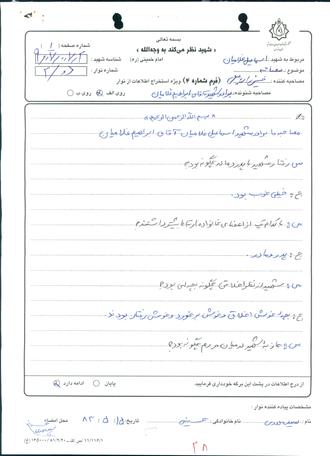 بسمه تعالی
« شهید نظر می‌کند به وجه‌الله »
امام خمینی (ره)
شماره صفحه : ۱
مربوط به شهید : اسماعیل غلامیان
شناسه شهید :
موضوع : مصاحبه
(فرم شماره ۴) ویژه استخراج اطلاعات از نوار
شماره نوار :
مصاحبه کننده :
مصاحبه شونده : برادر شهید آقای ابراهیم غلامیان
روی الف
روی ب
بسم الله الرحمن الرحیم
مصاحبه با برادر شهید اسماعیل غلامیان آقای ابراهیم غلامیان
س: رفتار شهید با پدر و مادر چگونه بود؟
ج: خیلی خوب بود.
س: با کدام یک از اعضای خانواده ارتباط بیشتر داشتند؟
ج: پدر و مادر.
س: شهید از نظر اخلاقی چگونه بچه‌ای بود؟
ج: بچه خوش اخلاق و خوش برخورد و خوش رفتار بودند.
س: شهید در میان مردم چگونه بود؟
از درج اطلاعات در پشت این برگه خودداری فرمایید.
ادامه دارد
پایان
مشخصات پیاده کننده نوار :
نام :
نام خانوادگی : حسینی
۸۳/۵/۵
محل امضاء
۲۸